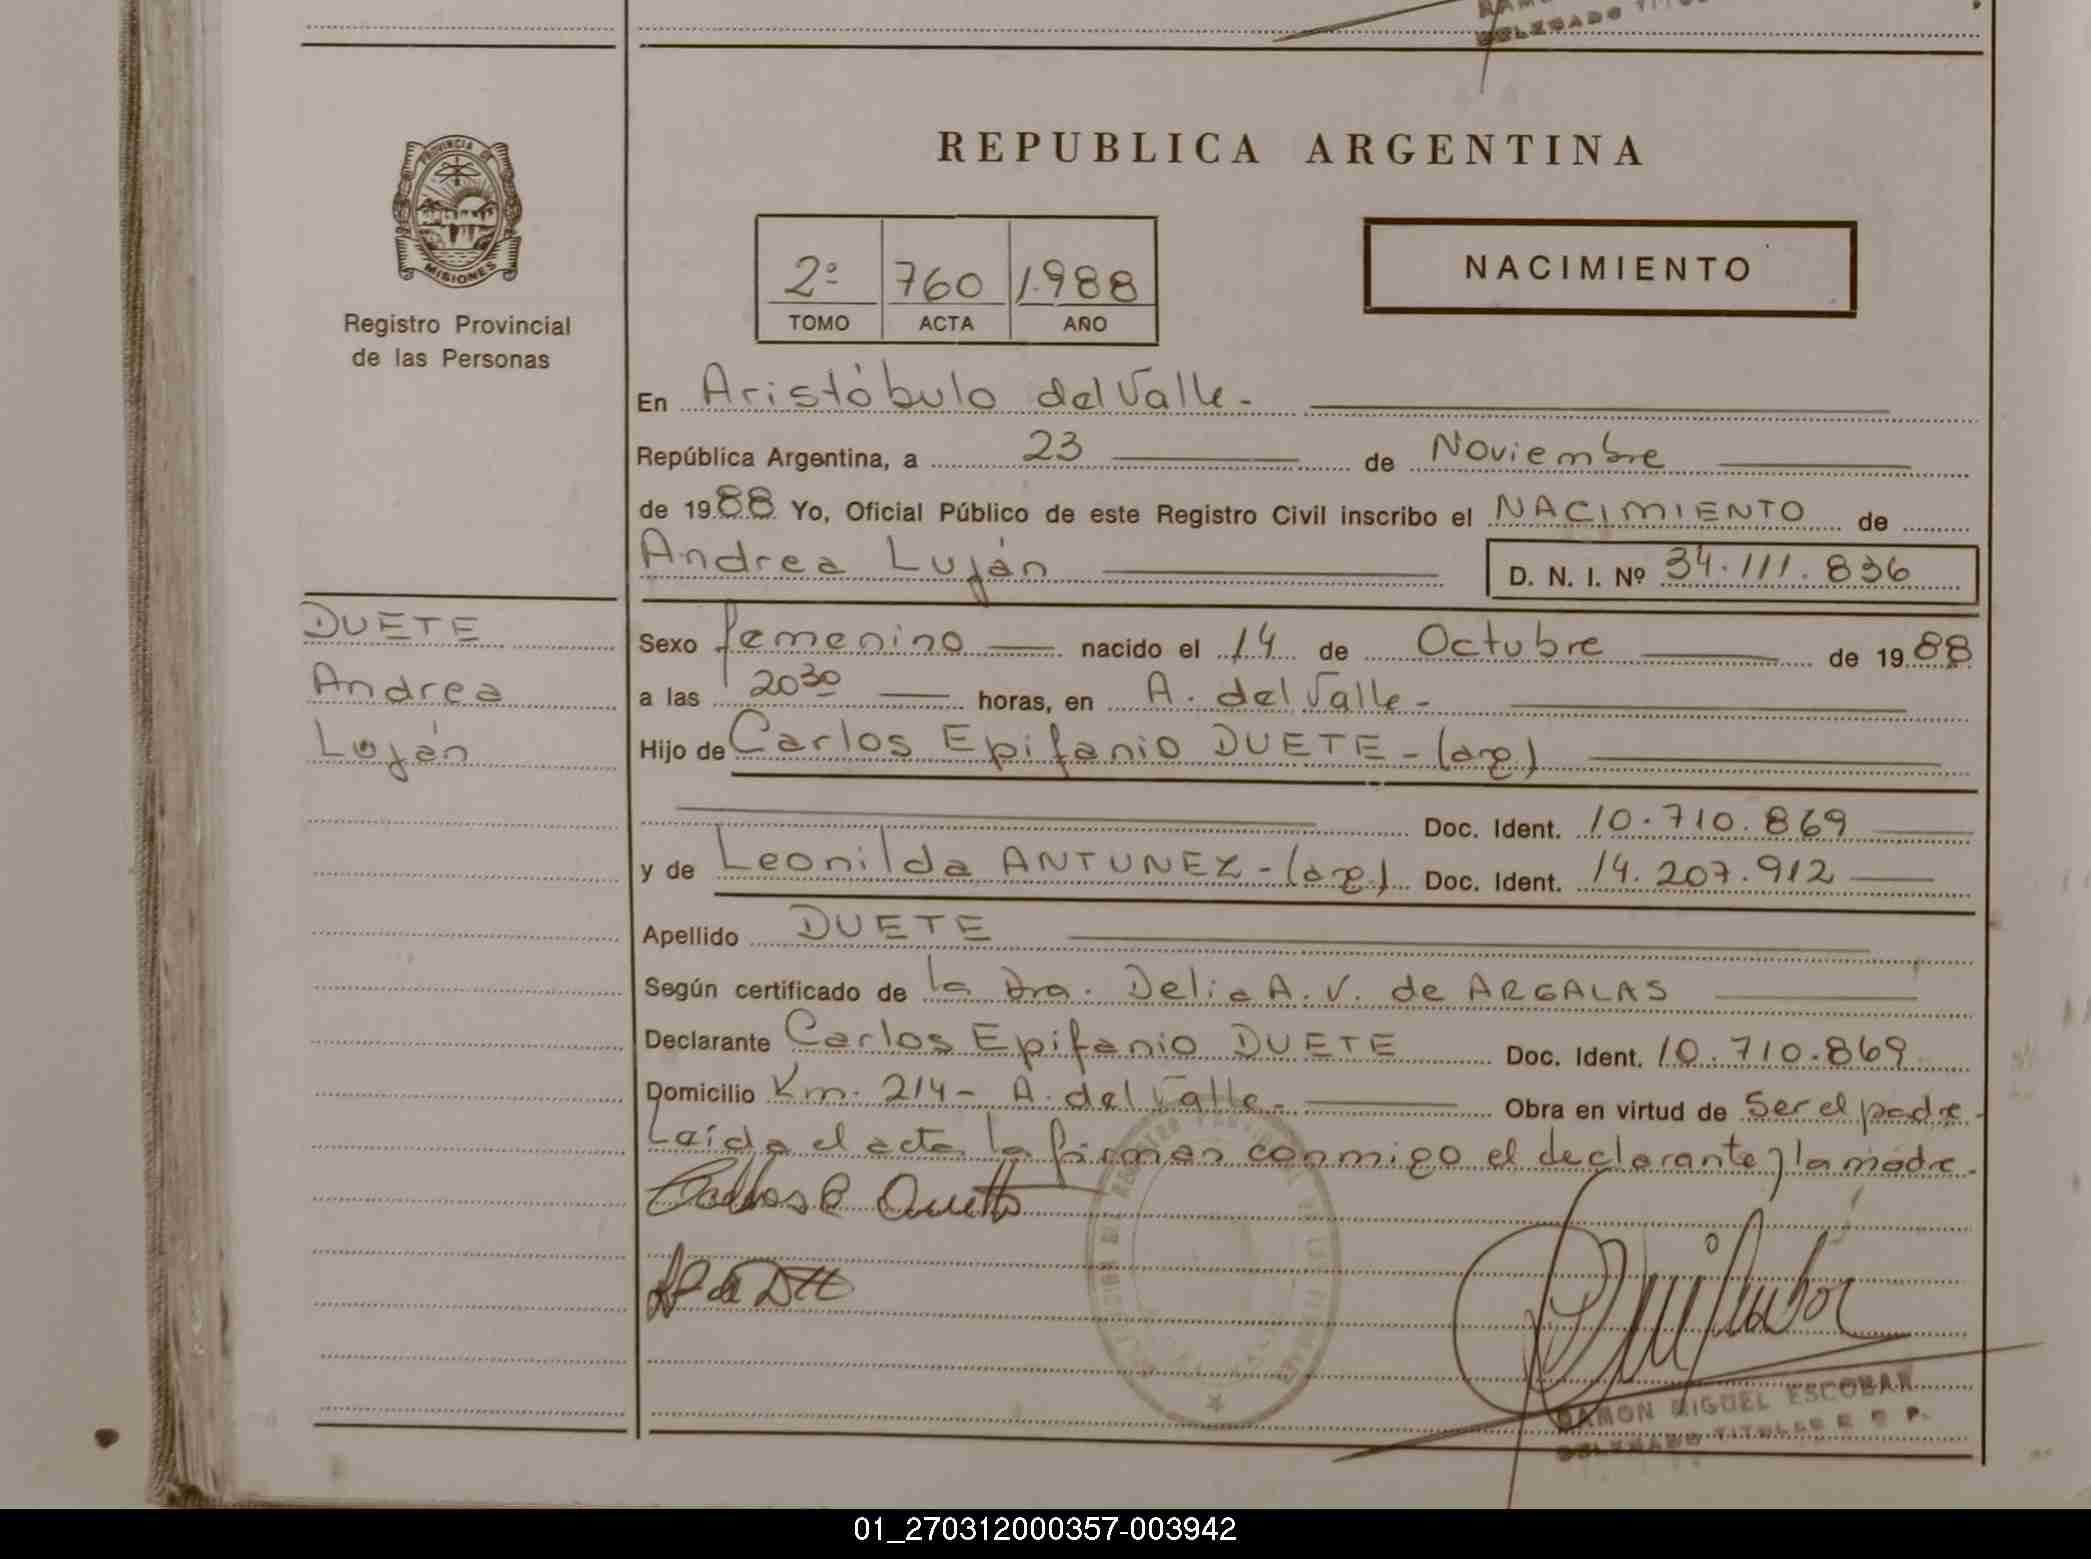 DELEGADO TITU
PROVINCIA DE
MISIONES
Registro Provincial
de las Personas
REPUBLICA ARGENTINA
2º 760 1.988
TOMO ACTA AÑO
NACIMIENTO
En Aristóbulo del Valle.-
República Argentina, a 23 de Noviembre
de 1988 Yo, Oficial Público de este Registro Civil inscribo el NACIMIENTO de
Andrea Luján D. N. I. Nº 34.111.836
DUETE
Andrea
Luján
Sexo femenino nacido el 14 de Octubre de 1988
a las 20³⁰ horas, en A. del Valle.-
Hijo de Carlos Epifanio DUETE-(arg)
Doc. Ident. 10.710.869
y de Leonilda ANTUNEZ-(arg) Doc. Ident. 14.207.912
Apellido DUETE
Según certificado de la Dra. Delia A. V. de ARGALAS
Declarante Carlos Epifanio DUETE Doc. Ident. 10.710.869
Domicilio Km. 214- A. del Valle.- Obra en virtud de Ser el padre.-
Leída el acta la firman conmigo el declarante y la madre.
Carlos E Duette
RAMON MIGUEL ESCOBAR
DELEGADO TITULAR R. P. P.
01_270312000357-003942